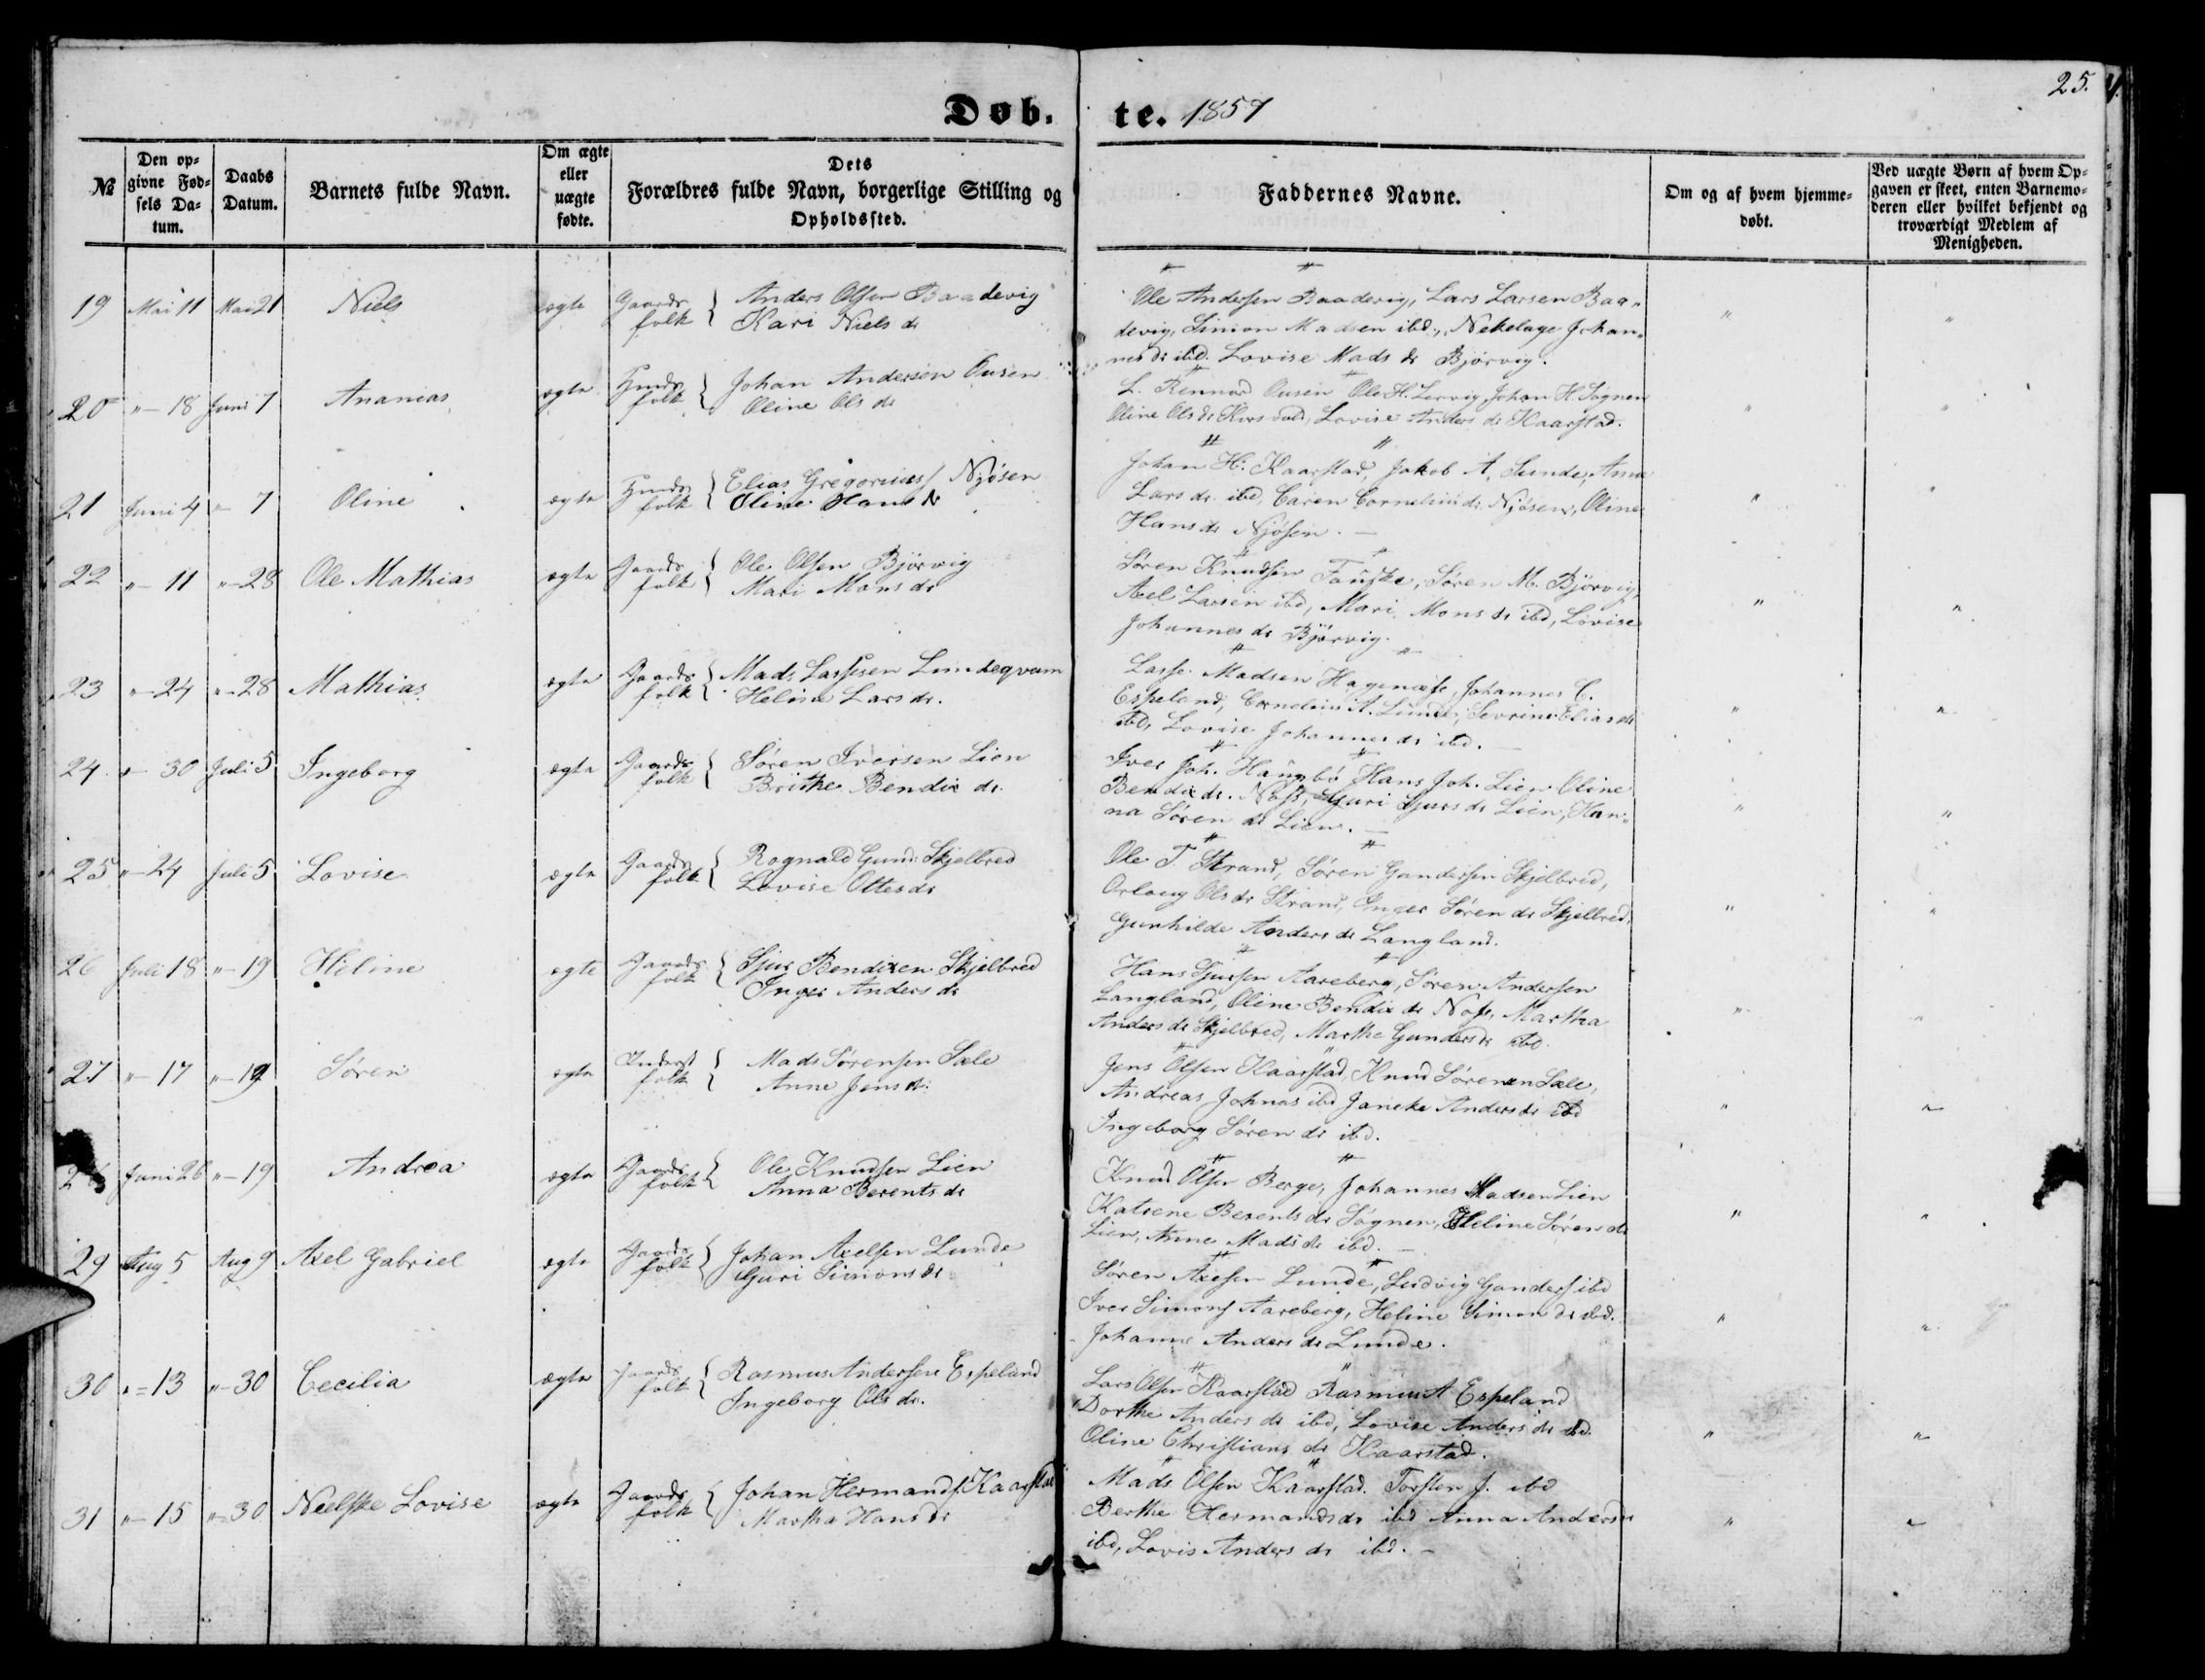 25.
Døb. te. 1857
№
Den opgivne Fødsels Datum.
Daabs Datum.
Barnets fulde Navn.
Om ægte eller uægte fødte.
Dets Forældres fulde Navn, borgerlige Stilling og Opholdssted.
Faddernes Navne.
Om og af hvem hjemmedøbt.
Ved uægte Børn af hvem Opgaven er skeet, enten Barnemoderen eller hvilket bekjendt og troværdigt Medlem af Menigheden.
19 Mai 11 Mai 21 Niels ægte Gaardsfolk { Anders Olsen Baadevig
Kari Niels dr
Ole Andersen Baadevig, Lars Larsen Baa„
devig, Simon Madsen ibd., Johan„
nes dr ibd. Lovise Mads dr Bjørvig.
20 „ – 18 Juni 7 Ananias ægte folk { Johan Andersen Ousen
Oline Ols dr
L. Ousen Ole H. Johan H. Søgnen
Oline Ols dr Lovise Anders dr Kaarstad.
21 Juni 4 „ – 7 Oline ægte folk { Elias Gregorius Njøsen
Oline Hans dr
Johan H. Kaarstad, Jakob A. Sunde, Anna
Lars dr ibd, Caren Cornelius dr Njøsen, Oline
Hans dr Njøsen. –
22 „ – 11 „ – 28 Ole Mathias ægte Gaardsfolk { Ole Olsen Bjørvig
Mari Mons dr
Søren Knudsen Fauske, Søren M. Bjørvig,
Axel Larsen ibd, Mari Mons dr ibd, Lovise
Johannes dr Bjørvig.
23 „ – 24 „ – 28 Mathias ægte Gaardsfolk { Mads Lassesen Lindeqvam
Heline Lars dr.
Lasse Madsen Hagenæs, Johannes C.
Espeland, Cornelius A. Lunde, Sevrine Elias dr
ibd, Lovise Johannes dr ibd. –
24. „ – 30 Juli 5 Ingeborg ægte Gaardsfolk { Søren Iversen Lien
Brithe Bendix dr.
Iver Joh. Haugbø Hans Joh. Lien Oline
Bendix dr. Guri Sjurs dr Lien, Han„
na Søren dr Lien. –
25 „ – 24 Juli 5 Lovise ægte Gaardsfolk { Rognald Gund: Skjelbred
Lovise Ottes dr
Ole T Strand, Søren Gundersen Skjelbred,
Ols dr Strand, Inger Søren dr Skjelbred,
Gunhilde Anders dr Langland.
26 Juli 18 „ – 19 Heline ægte Gaardsfolk { Sjur Bendixen Skjelbred
Inger Anders dr
Hans Sjursen Aareberg, Søren Andersen
Langland, Oline Bendix dr Martha
Anders dr Skjelbred, Marthe Gunders dr ibd.
27 „ – 17 „ – 19 Søren ægte Inderstfolk { Mads Sørensen Sæle
Anne Jens dr.
Jens Olsen Kaarstad, Knud Sørensen Sæle,
Andreas Johnas ibd Janeke Anders dr ibd
Ingeborg Søren dr ibd.
28 Juni 26 „ – 19 Andrea ægte Gaardsfolk { Ole Knudsen Lien
Anna Berents dr
Knud Olsen Berge, Johannes Madsen Lien
Katrene Berents dr Søgnen, Heline Søren dr
Lien, Anne Mads dr ibd. –
29 Aug 5 Aug 9 Axel Gabriel ægte Gaardsfolk { Johan Axelsen Lunde
Guri Simons dr
Søren Axelsen Lunde, Ludvig Gunders ibd
Iver Simons Aareberg, Heline Simon dr ibd.
Johanne Anders dr Lunde.
30 „ – 13 „ – 30 Cecilia ægte Gaardsfolk { Rasmus Andersen Espeland
Ingeborg Ols dr.
Lars Olsen Kaarstad Rasmus A Espeland
Dorthe Anders dr ibd, Lovise Anders dr ibd.
Oline Christians dr Kaarstad.
31 „ – 15 „ – 30 Neelske Lovise ægte Gaardsfolk { Johan Hermands. Kaarstad
Martha Hans dr
Mads Olsen Kaarstad. Torsten J. ibd
Berthe Hermands dr ibd Anna Anders dr
ibd, Lovis Anders dr ibd. –